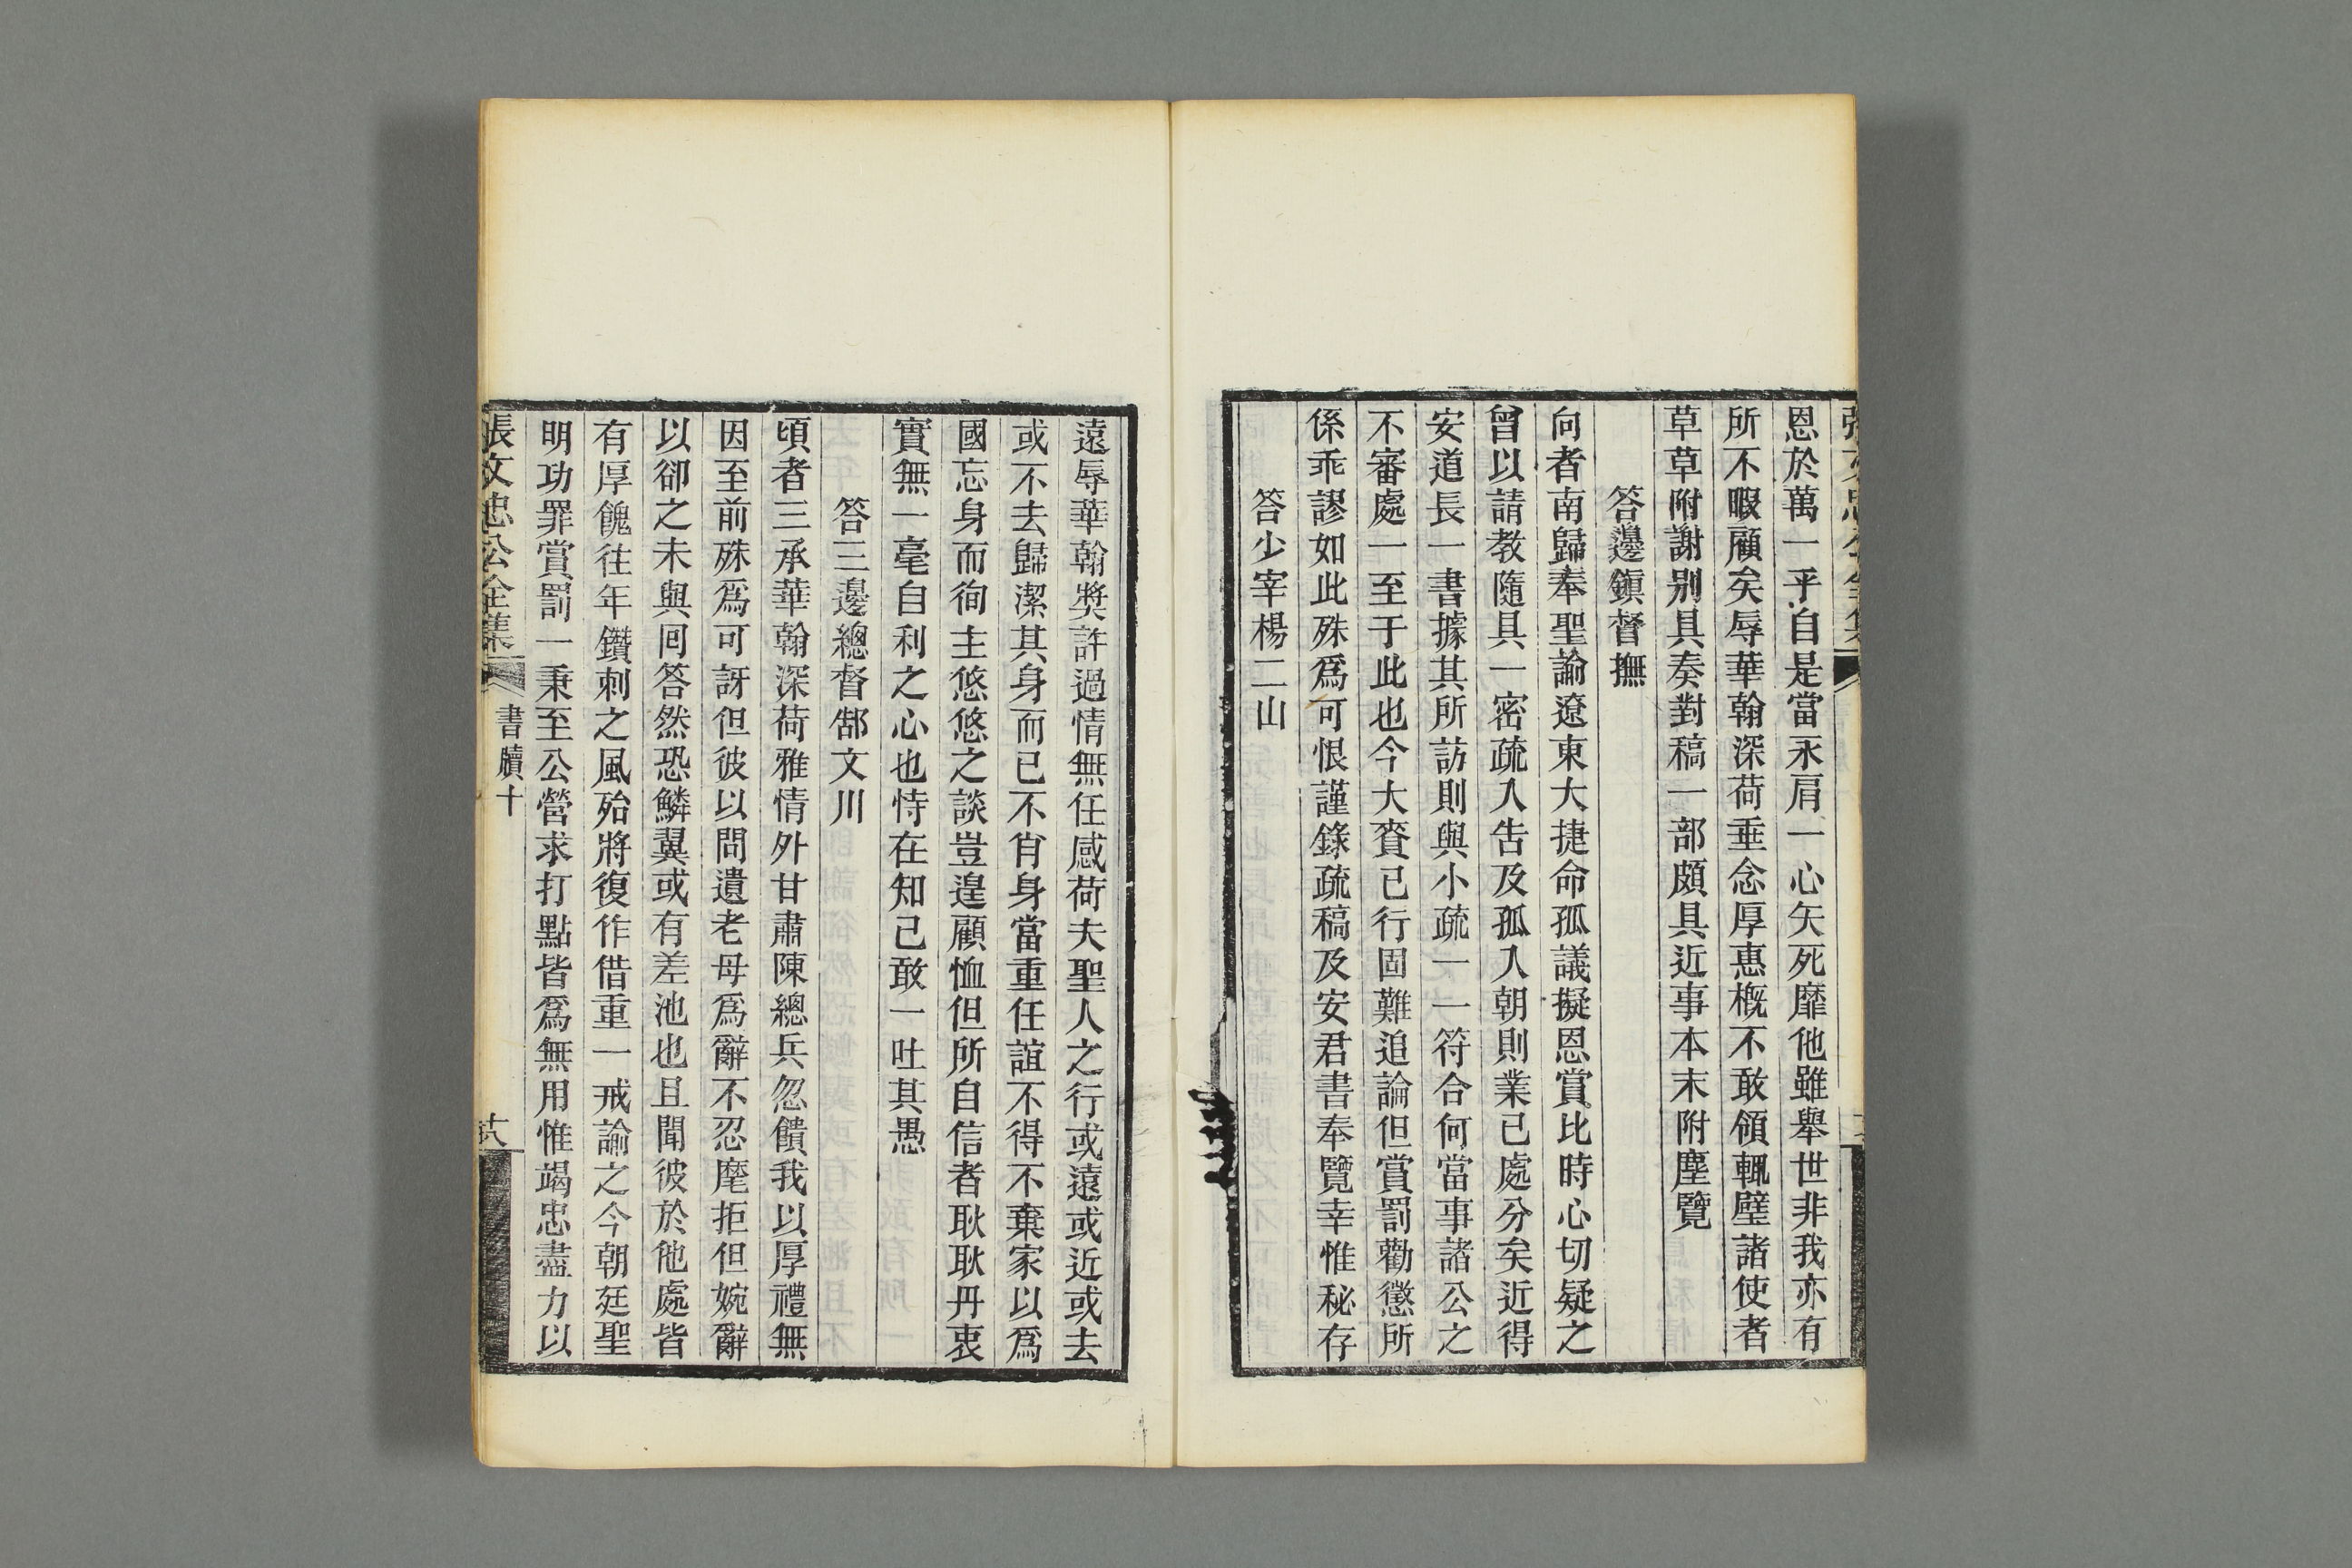 恩於萬一乎自是當永肩一心矢死靡他雖舉世非我亦有
所不暇顧矣辱華翰深荷垂念厚惠槪不敢領輒璧諸使者
草草附謝别具奏對稿一部頗具近事本末附塵覽
答邊鎭督撫
向者南歸奉聖諭遼東大捷命孤議擬恩賞比時心切疑之
曾以請教隨具一密疏入告及孤入朝則業已處分矣近得
安道長一書據其所訪則與小疏一一符合何當事諸公之
不審處一至于此也今大賚已行固難追論但賞罰勸懲所
係乖謬如此殊爲可恨謹錄疏稿及安君書奉覽幸惟秘存
答少宰楊二山
遠辱華翰奬許過情無任感荷夫聖人之行或遠或近或去
或不去歸潔其身而已不肖身當重任誼不得不棄家以爲
國忘身而徇主悠悠之談豈遑顧恤但所自信者耿耿丹衷
實無一毫自利之心也恃在知己敢一吐其愚
答三邊總督郜文川
頃者三承華翰深荷雅情外甘肅陳總兵忽饋我以厚禮無
因至前殊爲可訝但彼以問遺老母爲辭不忍麾拒但婉辭
以卻之未與囘答然恐鱗翼或有差池也且聞彼於他處皆
有厚餽往年鑽刺之風殆將復作借重一戒諭之今朝廷聖
明功罪賞罰一秉至公營求打點皆爲無用惟竭忠盡力以
張文忠公全集 書牘十 十八